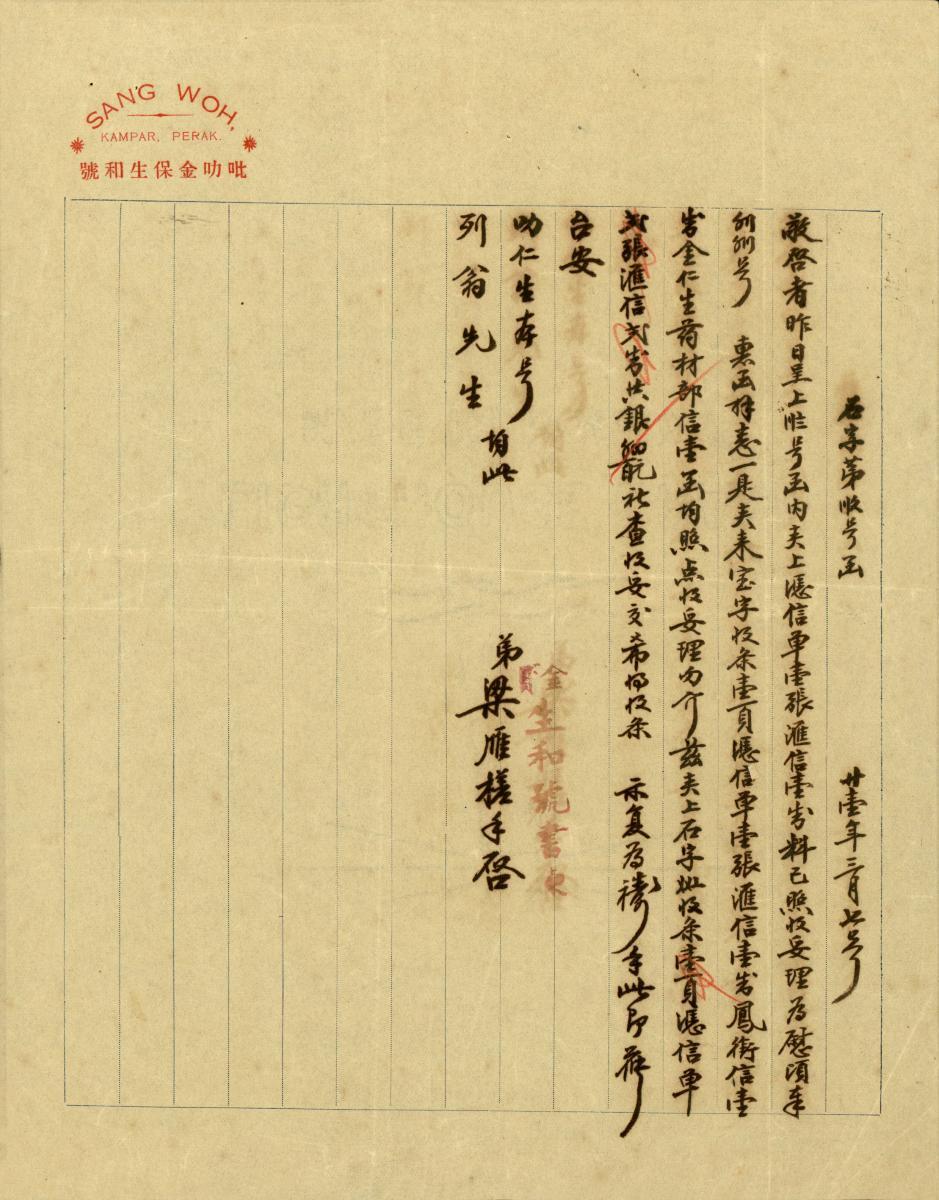 SANG WOH,
KAMPAR, PERAK.
號和生保金叻吡
石字第 号函 廿壹年三月七号
敬啓者昨日呈上 号函内夾上憑信单壹張滙信壹封料已照收妥理為慰頃奉
号 惠函祥悉一是夾来宝字收条壹頁憑信单壹張滙信壹封鳳衡信壹
封金仁生葯材部信壹函均照点收妥理勿介兹夾上石字 收条壹頁憑信单
弍張滙信弍封共銀 祈查收妥交希 收条 示复為禱手此即頌
台安
叻仁生本号
列翁先生 均此
金生和號書柬
弟梁雁槎手啓